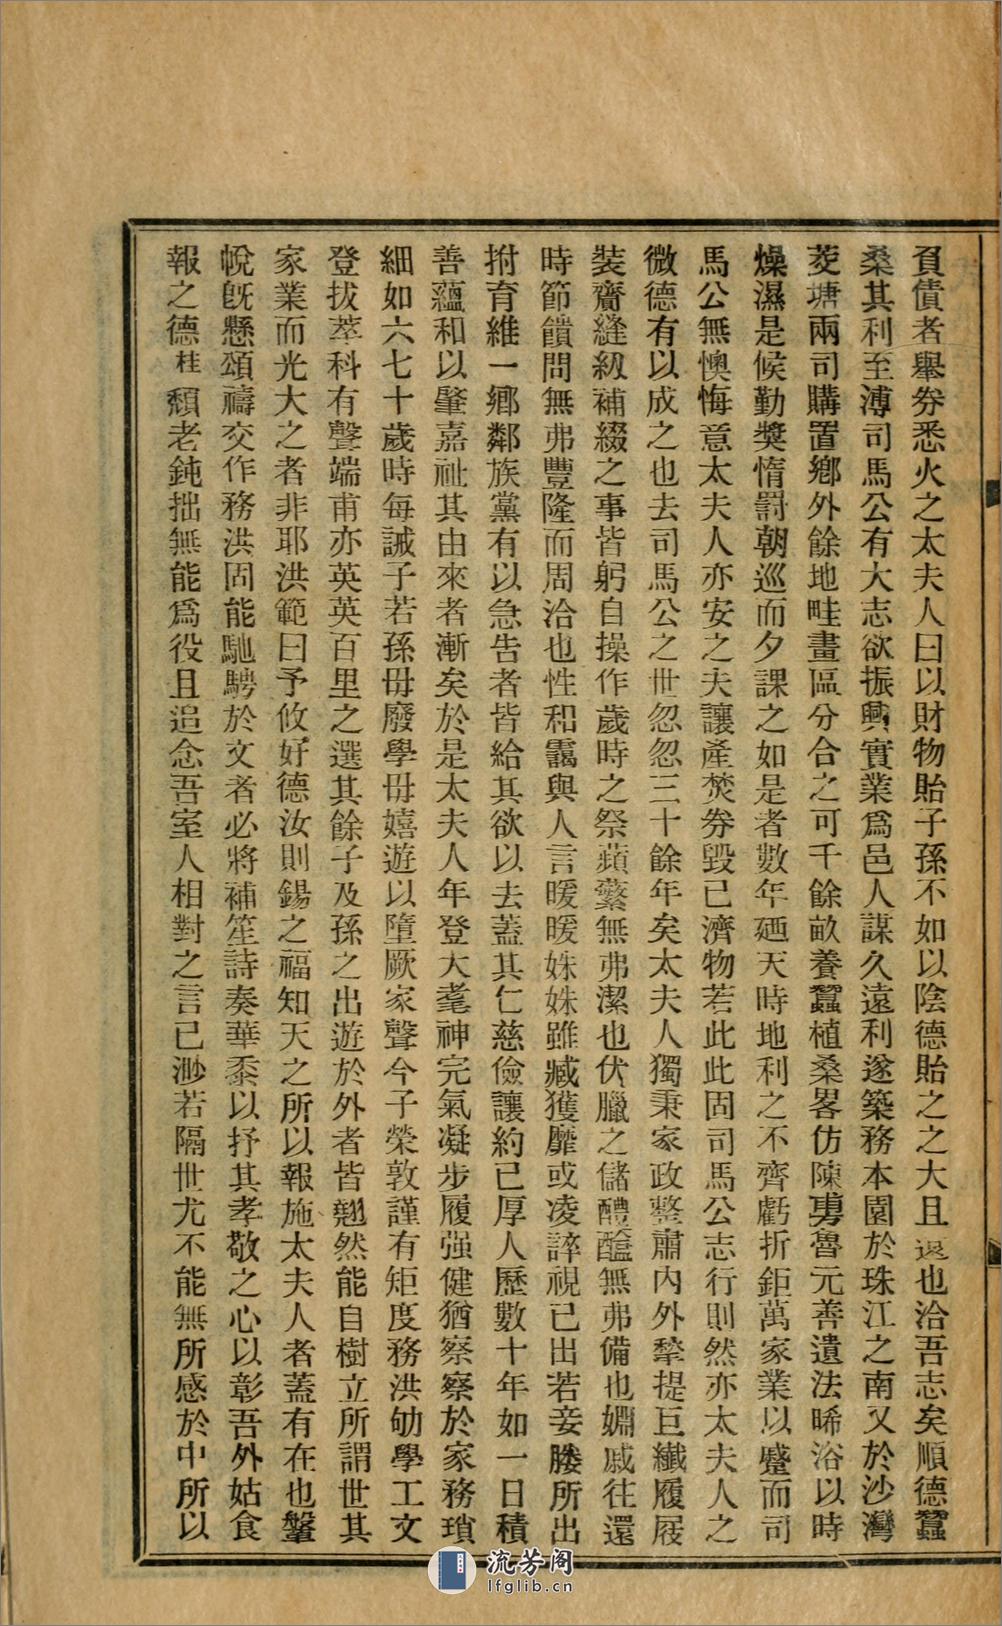 負債者舉券悉火之太夫人曰以財物貽子孫不如以陰德貽之之大且遠也洽吾志矣順德蠶
桑其利至溥司馬公有大志欲振興實業爲邑人謀久遠利遂築務本園於珠江之南又於沙灣
茭塘兩司購置鄉外餘地畦畫區分合之可千餘畝養蠶植桑畧仿陳旉魯元善遺法晞浴以時
燥濕是候勤獎惰罰朝巡而夕課之如是者數年廼天時地利之不齊虧折鉅萬家業以蹙而司
馬公無懊悔意太夫人亦安之夫讓產焚券毀已濟物若此此固司馬公志行則然亦太夫人之
微德有以成之也去司馬公之世忽忽三十餘年矣太夫人獨秉家政整肅內外犂提巨纖履屐
裝齎縫級補綴之事皆躬自操作歲時之祭蘋蘩無弗潔也伏臘之儲醴醢無弗備也婣戚往還
時節饋問無弗豐隆而周洽也性和靄與人言暖暖姝姝雖臧獲靡或凌誶視已出若妾媵所出
拊育維一鄉鄰族黨有以急告者皆給其欲以去蓋其仁慈儉讓約已厚人歷數十年如一日積
善蘊和以肇嘉祉其由來者漸矣於是太夫人年登大耄神完氣凝步履强健猶察察於家務瑣
細如六七十歲時每誡子若孫毋廢學毋嬉遊以墮厥家聲今子榮敦謹有矩度務洪劬學工文
登拔萃科有聲端甫亦英英百里之選其餘子及孫之出遊於外者皆翹然能自樹立所謂世其
家業而光大之者非耶洪範曰予攸好德汝則錫之福知天之所以報施太夫人者蓋有在也鞶
帨旣懸頌禱交作務洪固能馳騁於文者必將補笙詩奏華黍以抒其孝敬之心以彰吾外姑食
報之德桂頽老鈍拙無能爲役且追念吾室人相對之言已渺若隔世尤不能無所感於中所以
流芳阁
lfglib.cn